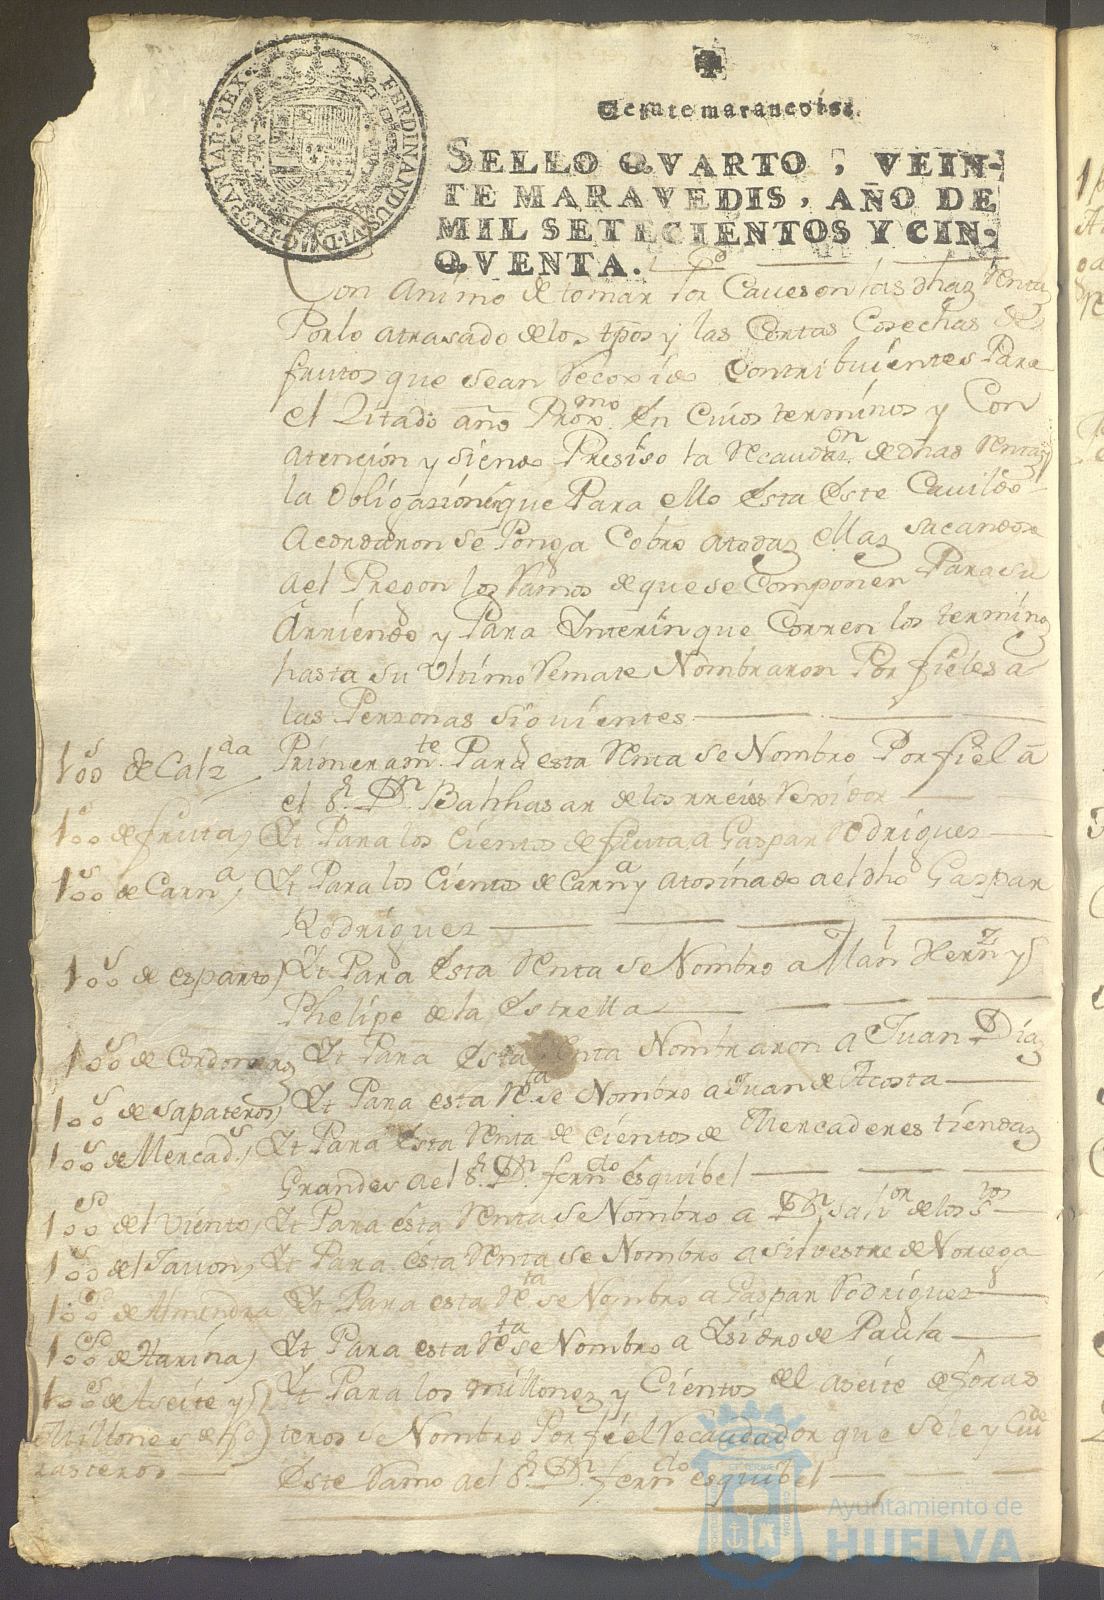 FERDINANDUS·VI·D·G·HISPANIAR·REX·
SELLO QVARTO, VEIN-
TE MARAVEDIS, AÑO DE
MIL SETECIENTOS Y CIN-
QVENTA.
Con Animo de tomar Por Caveson las dhas Rentas
Por lo atrasado de los tpos y las Cortas Cosechas de
frutos que sean Recoxido Contribuientes Para
el Zitado año Proxmo En Cuios terminos y Con
atencion y siendo Presiso la Recaudazon de dhas Rentas y
la Obligazion que Para ello Esta Este Cavildo
Acordaron se Ponga Cobro a todas ellas sacandose
ael Pregon los Ramos de que se Componen Para su
Arriendo y Para Ynterin que Corren los terminos
hasta su Ultimo Remate Nombraron Por fieles a
las Personas siguientes
100s de Calzda Primeramte Para esta Renta se Nombro Por fiel a
el Sr. Dn Balthasar de los rreies Rexidor
100s de fruta, Yt Para los Cientos de fruta a Gaspar Rodrigues
100s de Carna, Yt Para los Cientos de Carna y atosinado ael dho Gaspar
Rodriguez
100s de esparto, Yt Para Esta Renta se Nombro a Man Hernz y
Phelipe de la Estrella
100s de Cordoneros Yt Para Esta Renta Nombraron a Juan Diaz
100s de sapateros, Yt Para esta Rta se Nombro a Juan de Acosta
100s de Mercads, Yt Para Esta Renta de Cientos de Mercaderes tiendas
Grandes ael Sr. Dn ferndo esquibel
100s del viento, Yt Para esta Renta se Nombro a Dn Salvor de los Stos
100s del Javon, Yt Para esta Renta se Nombro a Silvestre de Noriega
100s de Almendra Yt Para esta Rta se Nombro a Gaspar Rodriguez
100s de Harina, Yt Para esta Rta se Nombro a Ysidro de Paula
100s de Aseite y Yt Para los millones y Cientos del aseite de foras
Millones de fo teros se Nombro Por fiel Recaudador que sele y
rasteros Este Ramo ael Sr. Dn ferndo esquibel
Ayuntamiento de
HUELVA